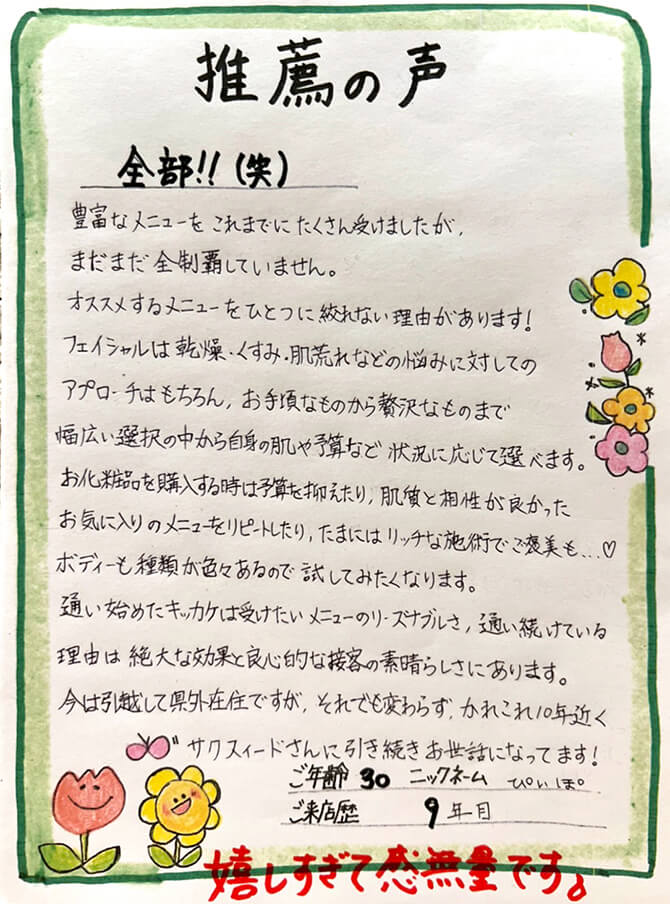 推薦の声
全部!!(笑)
豊富なメニューをこれまでにたくさん受けましたが、
まだまだ全制覇していません。
オススメするメニューをひとつに絞れない理由があります!
フェイシャルは乾燥・くすみ・肌荒れなどの悩みに対しての
アプローチはもちろん、お手頃なものから贅沢なものまで
幅広い選択の中から自身の肌や予算など状況に応じて選べます。
お化粧品を購入する時は予算を抑えたり、肌質と相性が良かった
お気に入りのメニューをリピートしたり、たまにはリッチな施術でご褒美も…♡
ボディーも種類が色々あるので試してみたくなります。
通い始めたキッカケは受けたいメニューのリーズナブルさ、通い続けている
理由は絶大な効果と良心的な接客の素晴らしさにあります。
今は引越して県外在住ですが、それでも変わらず、かれこれ10年近く
サクスィードさんに引き続きお世話になってます!
ご年齢 30 ニックネーム ぴぃぽ
ご来店歴 9年目
嬉しすぎて感無量です。